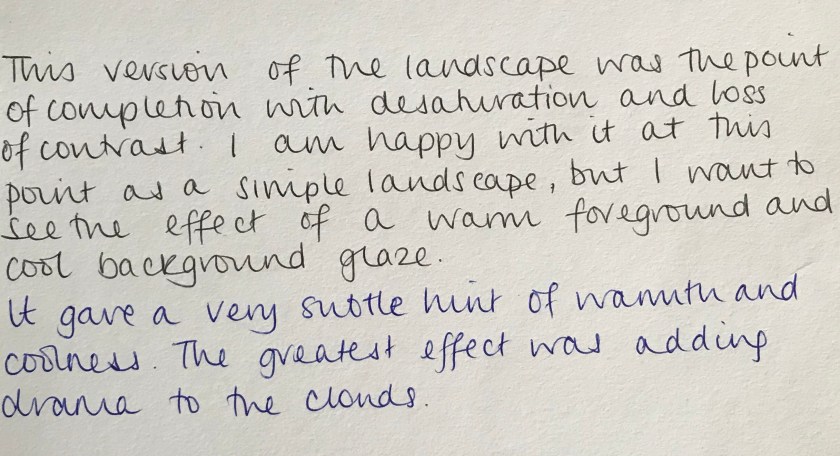 This version of the landscape was the point
of completion with desaturation and loss
of contrast. I am happy with it at this
point as a simple landscape, but I want to
see the effect of a warm foreground and
cool background glaze.
It gave a very subtle hint of warmth and
coolness. The greatest effect was adding
drama to the clouds.